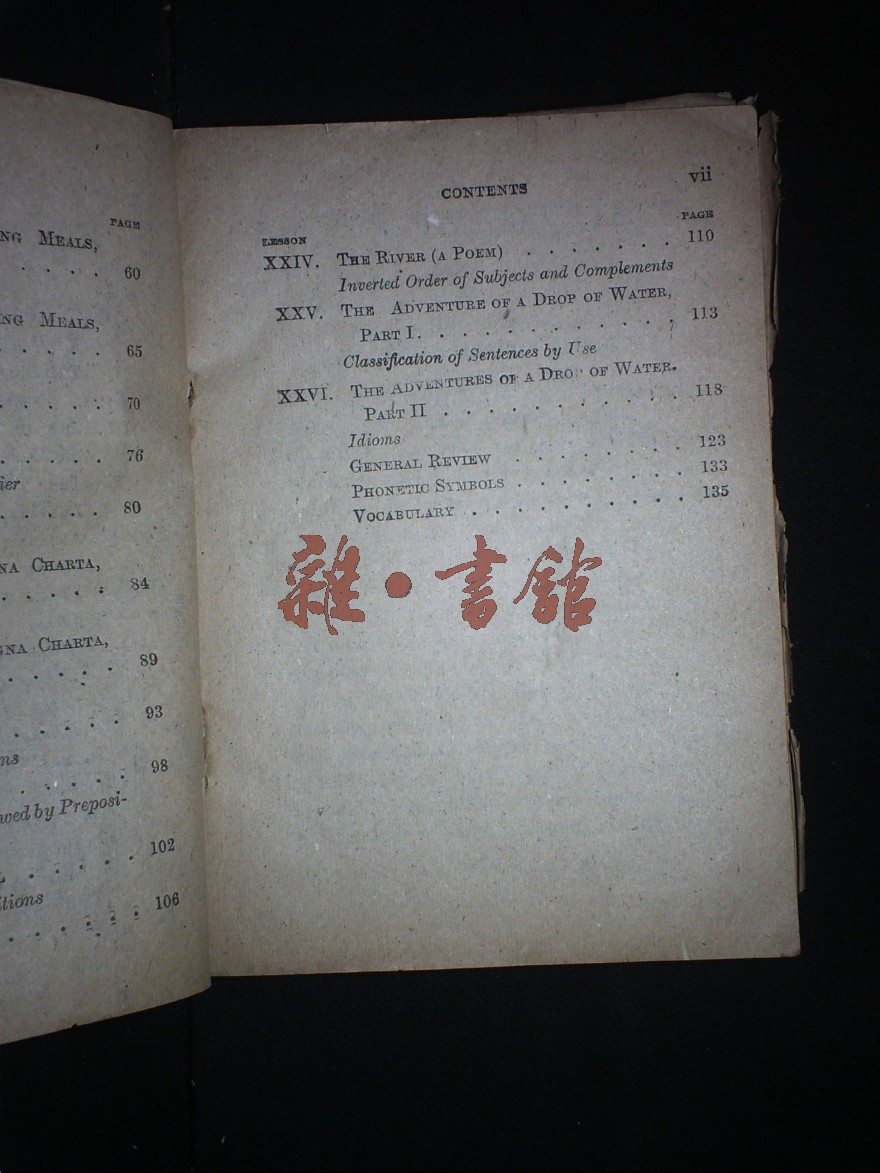 PAGE
NG MEALS,
. . . . 60
NG MEALS,
. . . . . 65
. . . . . 70
. . . . . 76
ier
. . . . . 80
NA CHARTA,
. . . . . 84
NA CHARTA,
. . . . . 89
. . . . . 93
ns
. . . . . 98
wed by Preposi-
. . . . . 102
itions
. . . . . 106
CONTENTS vii
LESSON PAGE
XXIV. THE RIVER (A POEM) . . . . . . . 110
Inverted Order of Subjects and Complements
XXV. THE ADVENTURE OF A DROP OF WATER,
PART I . . . . . . . . . . . 113
Classification of Sentences by Use
XXVI. THE ADVENTURES OF A DROP OF WATER.
PART II . . . . . . . . . . 118
Idioms
GENERAL REVIEW . . . . . . . 123
PHONETIC SYMBOLS . . . . . . . 133
VOCABULARY . . . . . . . . . 135
雜·書館